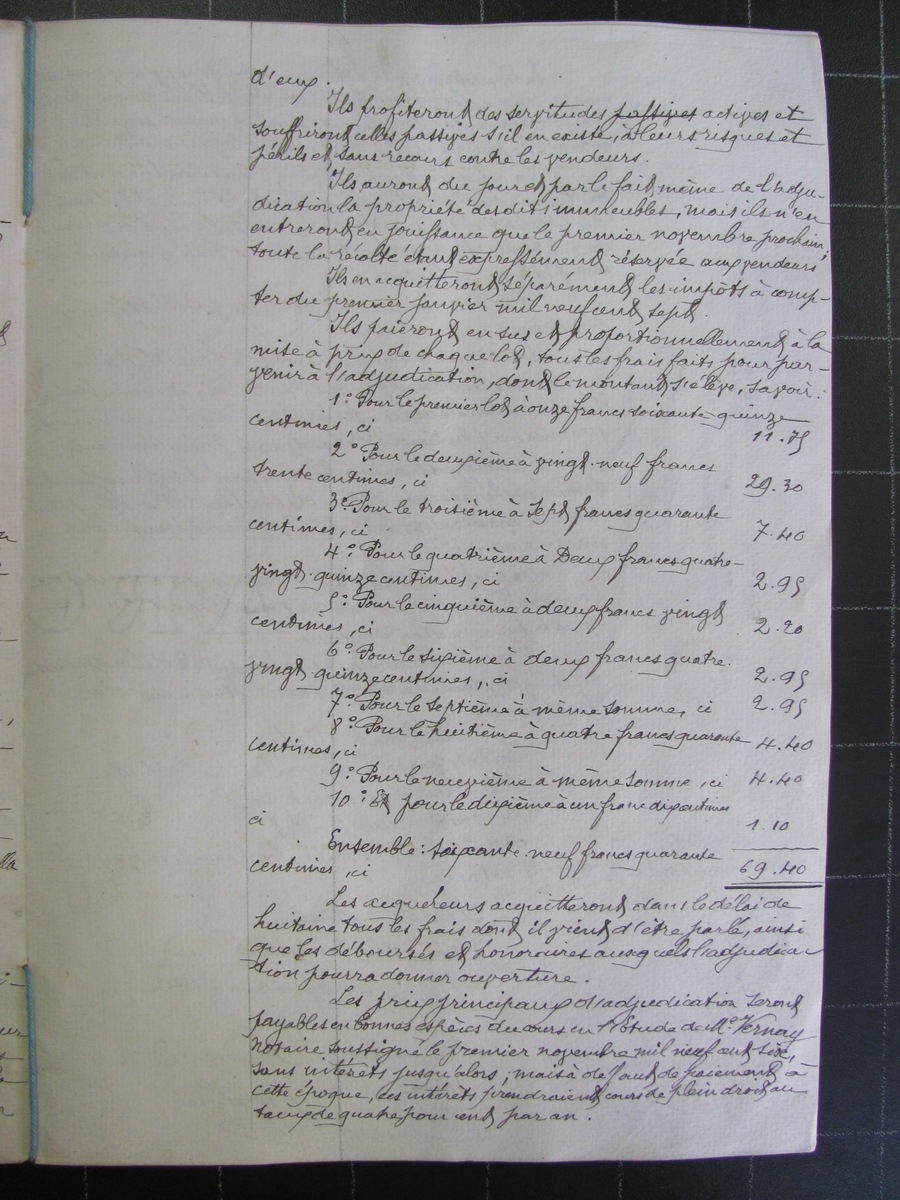 d'eux.
Ils profiteront des servitudes passives actives et
souffriront celles passives s'il en existe, à leurs risques et
périls et sans recours contre les vendeurs.
Ils auront du jour et par le fait même de l'adju-
dication la propriété desdits immeubles, mais ils n'en
entreront en jouissance que le premier novembre prochain,
toute la récolte étant expressément réservée aux vendeurs
Ils en acquitteront séparément les impôts à comp-
ter du premier janvier mil neuf cent sept.
Ils paieront en sus et proportionnellement à la
mise à prix de chaque lot, tous les frais faits pour par-
venir à l'adjudication, dont le montant s'élève, savoir:
1° Pour le premier lot à onze francs soixante quinze
centimes, ci 11.75
2° Pour le deuxième à vingt-neuf francs
trente centimes, ci 29.30
3° Pour le troisième à sept francs quarante
centimes, ci 7.40
4° Pour le quatrième à Deux francs quatre-
vingt-quinze centimes, ci 2.95
5° Pour le cinquième à deux francs vingt
centimes, ci 2.20
6° Pour le sixième à deux francs quatre.
vingt-quinze centimes, ci 2.95
7° Pour le septième à même somme, ci 2.95
8° Pour le huitième à quatre francs quarante
centimes, ci 4.40
9° Pour le neuvième à même somme, ci 4.40
10° Et pour le dixième à un franc dix centimes
ci 1.10
Ensemble: soixante-neuf francs quarante
centimes, ci 69.40
Les acquéreurs acquitteront dans le délai de
huitaine tous les frais dont il vient d'être parlé, ainsi
que les déboursés et honoraires auxquels l'adjudica-
tion pourra donner ouverture.
Les prix principaux d'adjudication seront
payables en bonnes espèces du cours en l'Etude de Me Vernay
notaire soussigné le premier novembre mil neuf cent six,
sans intérêts jusqu'alors; mais à défaut de paiement à
cette époque, ces intérêts prendraient cours de plein droit au
taux de quatre pour cent par an.